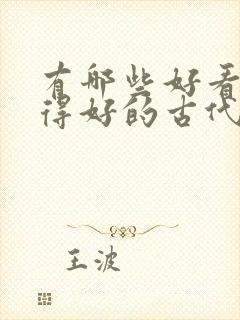 有哪些好看
得好的古代
王波